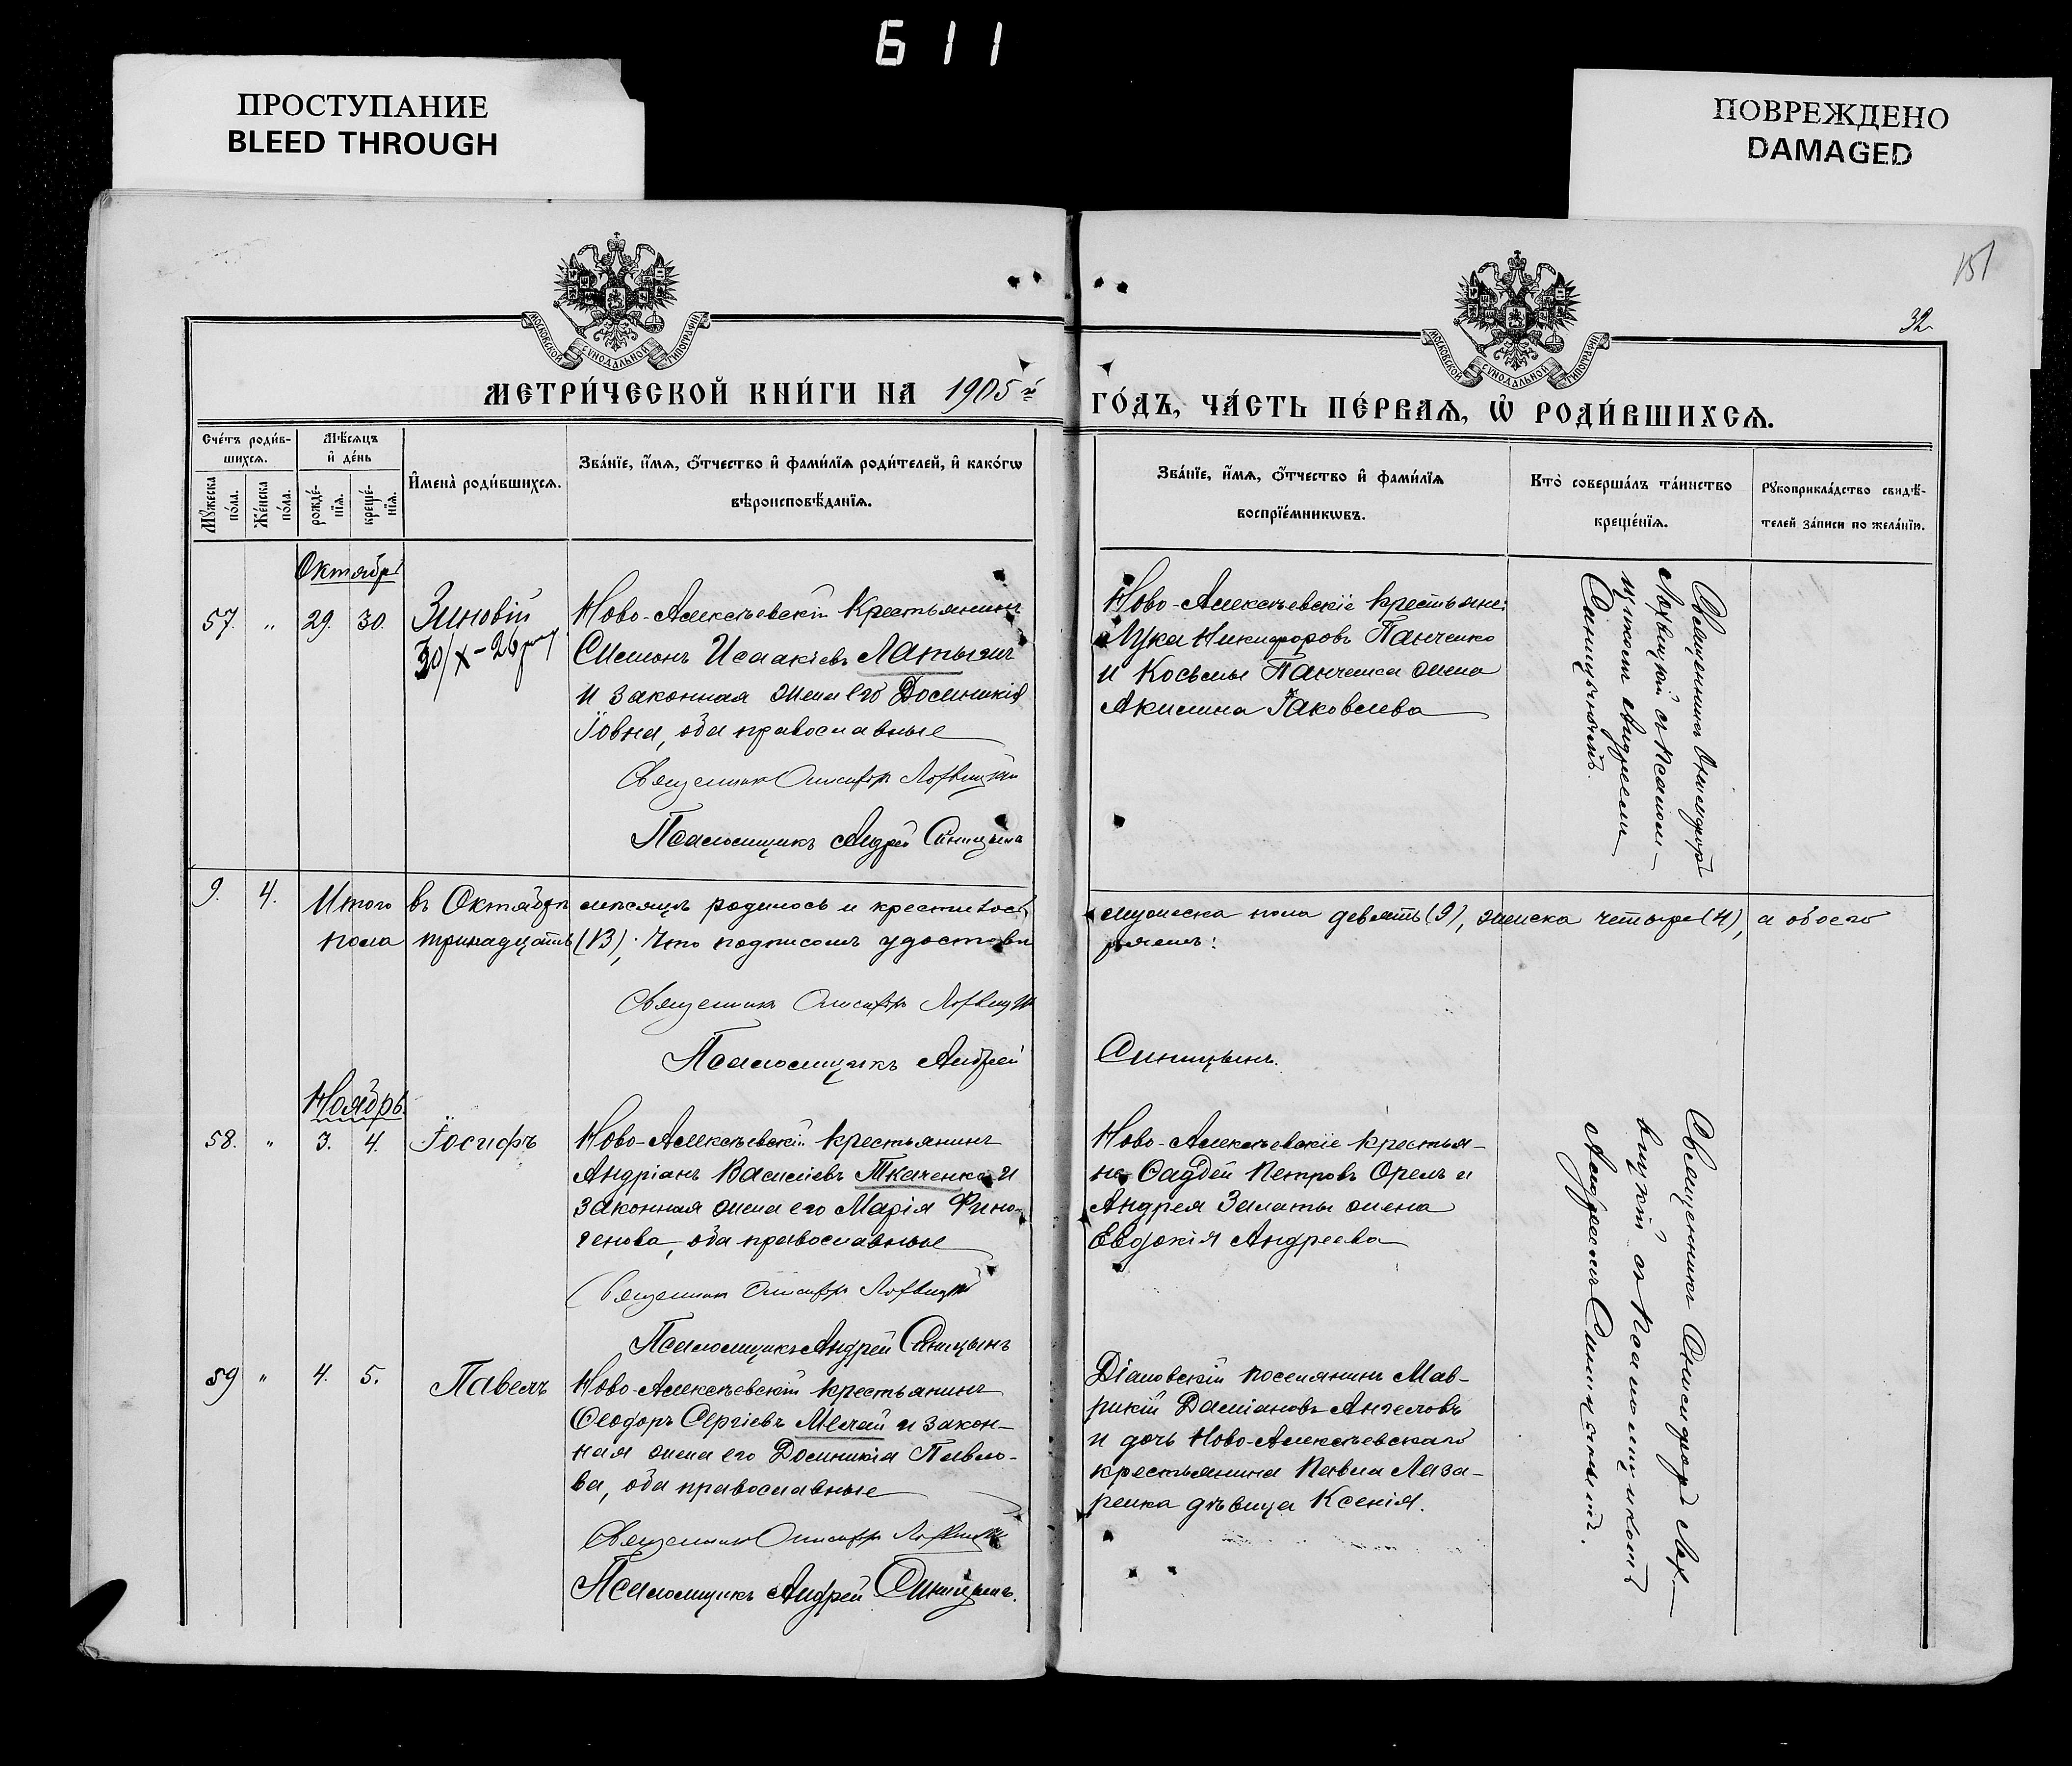 611
ПРОСТУПАНИЕ
BLEED THROUGH
ПОВРЕЖДЕНО
DAMAGED
151
32
МОСКОВСКОЙ СѴНОДАЛЬНОЙ ТИПОГРАФИИ
МОСКОВСКОЙ СѴНОДАЛЬНОЙ ТИПОГРАФИИ
МЕТРИ́ЧЕСКОЙ КНИ́ГИ НА 1905й
ГО́ДЪ, ЧА́СТЬ ПЕ́РВАЯ, Ѡ РОДИ́ВШИХСЯ.
Сче́тъ роди́вшихся.
Му́жеска по́ла.
Же́нска по́ла.
Мѣ́сяцъ и де́нь
рожде́нїя.
креще́нїя.
Имена̀ роди́вшихся.
Зва́нїе, и́мя, о́тчество и фами́лїя роди́телей, и како́гѡ
вѣроисповѣ́данїя.
Зва́нїе, и́мя, о́тчество и фами́лїя
воспрїе́мникѡвъ.
Кто̀ соверша́лъ та́инство
креще́нїя.
Рукоприкла́дство свидѣ́-
телей за́писи по жела́нїю.
Октябрь
57. " 29. 30. Зиновій
30/X-26
Ново-Алексѣевскій Крестьянинъ
Симеонъ Исаакіевъ Латышъ
и законная жена его Домникія
Іовна, оба православные
Священникъ Онисифоръ Лохвицкій
Псаломщикъ Андрей Синицынъ
Ново-Алексѣевскіе крестьяне:
Лука Никифоровъ Панченко
и Косьмы Панченка жена
Акилина Іаковлева
Священникъ Онисифоръ
Лохвицкій съ Псалом-
щикомъ Андреемъ
Синицынымъ.
9. 4. Итого въ Октябрѣ мѣсяцѣ родилось и крестилось мужеска пола девять (9), женска четыре (4), а обоего
пола тринадцать (13), что подписомъ удостовѣряемъ:
Священникъ Онисифоръ Лохвицкій
Псаломщикъ Андрей Синицынъ.
Ноябрь
58. " 3. 4. Іосифъ
Ново-Алексѣевскій крестьянинъ
Андріанъ Василіевъ Ткаченко и
законная жена его Марія Фино-
генова, оба православные
Священникъ Онисифоръ Лохвицкій
Псаломщикъ Андрей Синицынъ
Ново-Алексѣевскіе крестья-
не Фаддей Петровъ Орелъ и
Андрея Залаты жена
Евдокія Андреева
59 " 4. 5. Павелъ
Ново-Алексѣевскій крестьянинъ
Ѳеодоръ Сергіевъ Мелай и закон-
ная жена его Домникія Павло-
ва, оба православные
Священникъ Онисифоръ Лохвицкій
Псаломщикъ Андрей Синицынъ.
Діановскій поселянинъ Мав-
рикій Даміановъ Ангеловъ
и дочь Ново-Алексѣевскаго
крестьянина Павла Лаза-
ренка дѣвица Ксенія.
Священникъ Онисифоръ Лох-
вицкій съ Псаломщикомъ
Андреемъ Синицынымъ.